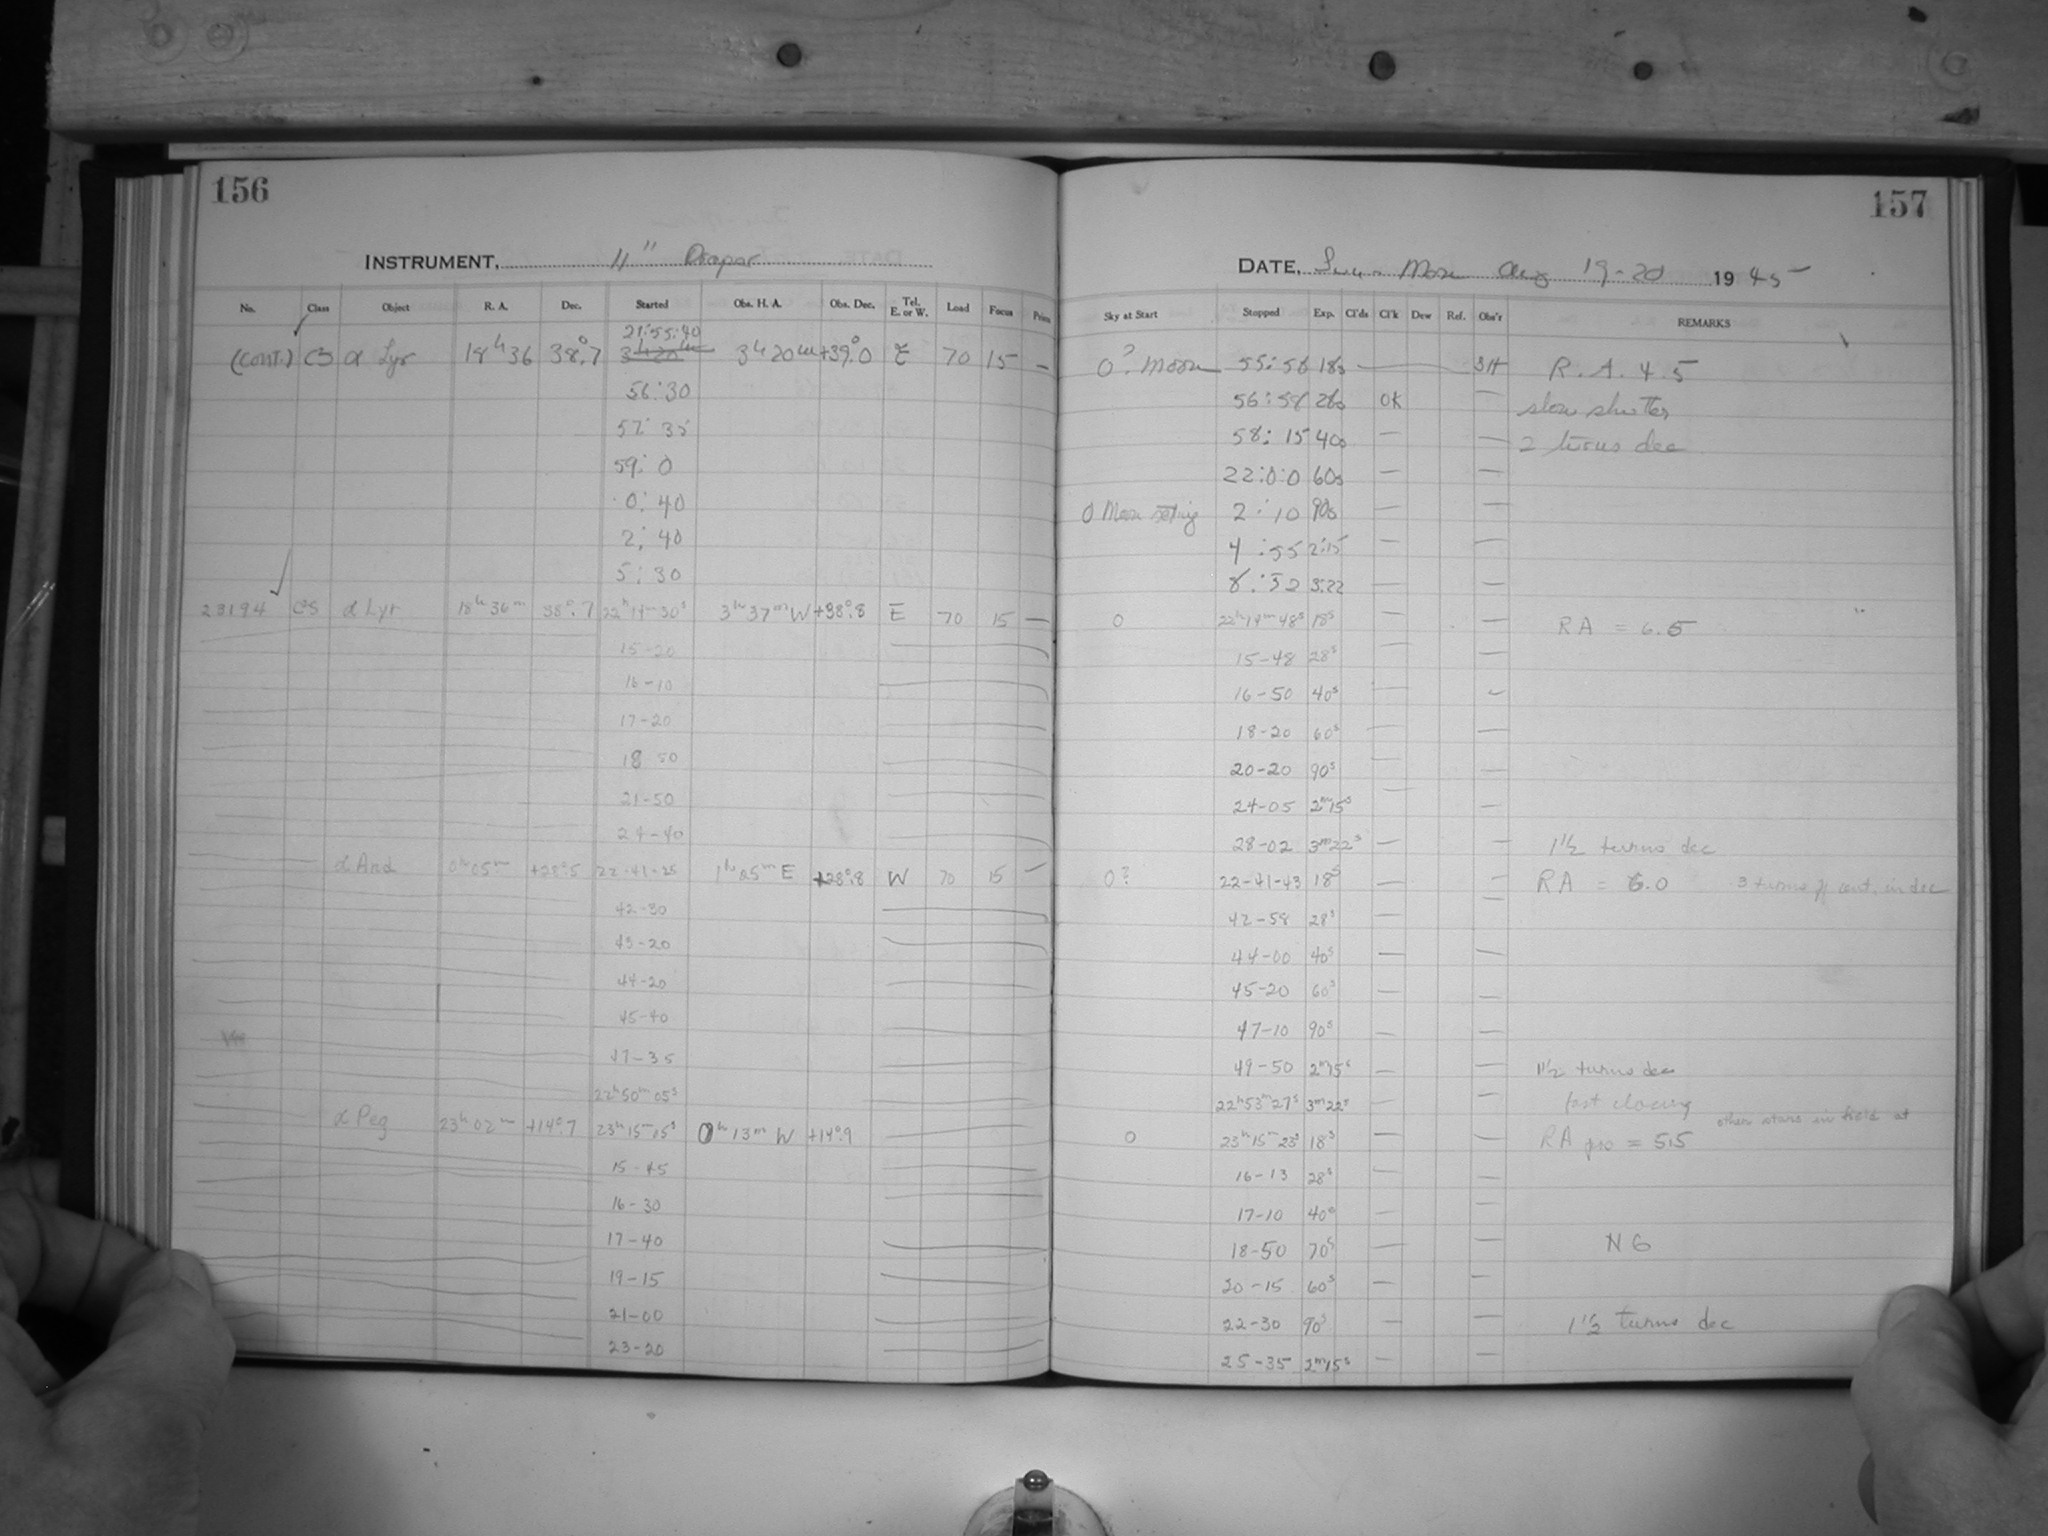 156
INSTRUMENT, 11" Draper
No. Class Object R. A. Dec. Started Obs. H. A. Obs. Dec. Tel. E. or W. Load Focus Prism
21:55:40
(CONT.) α Lyr 18h36 38°.7 3h20m 3h20m +39°.0 E 70 15 —
56:30
57:35
59:0
0:40
2:40
5:30
23194 CS α Lyr 18h36m 38°.7 22h14m30s 3h37mW +38°.8 E 70 15 —
15-20
16-10
17-20
18 50
21-50
24-40
α And 0h05m +28°.5 22-41-25 1h05m E +28°.8 W 70 15 —
42-30
43-20
44-20
45-40
47-35
22h50m05s
α Peg 23h02m +14°.7 23h15m15s 0h13m W +14°.9
15-45
16-30
17-40
19-15
21-00
23-20
157
DATE, Sun-Mon Aug 19-20 1945
Sky at Start Stopped Exp. Cl'ds Cl'k Dew Ref. Obs'r REMARKS
0? Moon 55:58 18s SH R.A. 4.5
56:58 28s OK — slow shutter
58:15 40s — — 2 turns dec
22:0:0 60s — —
0 Moon setting 2:10 90s — —
4:55 2:15 — —
8:52 3:22 — —
0 22h14m48s 18s — — RA = 6.5
15-48 28s — —
16-50 40s — —
18-20 60s — —
20-20 90s —
24-05 2m15s — —
28-02 3m22s — — 1½ turns dec
0? 22-41-43 18s — — RA = 6.0 3 turns of cent. in dec
42-58 28s — —
44-00 40s — —
45-20 60s — —
47-10 90s — —
49-50 2m15s — — 1½ turns dec
22h53m27s 3m22s — — fast closing
other stars in field at
0 23h15m23s 18s — — RA = 5.5
16-13 28s — —
17-10 40s — —
18-50 70s — — NG
20-15 60s — —
22-30 90s — — 1½ turns dec
25-35 2m15s — —